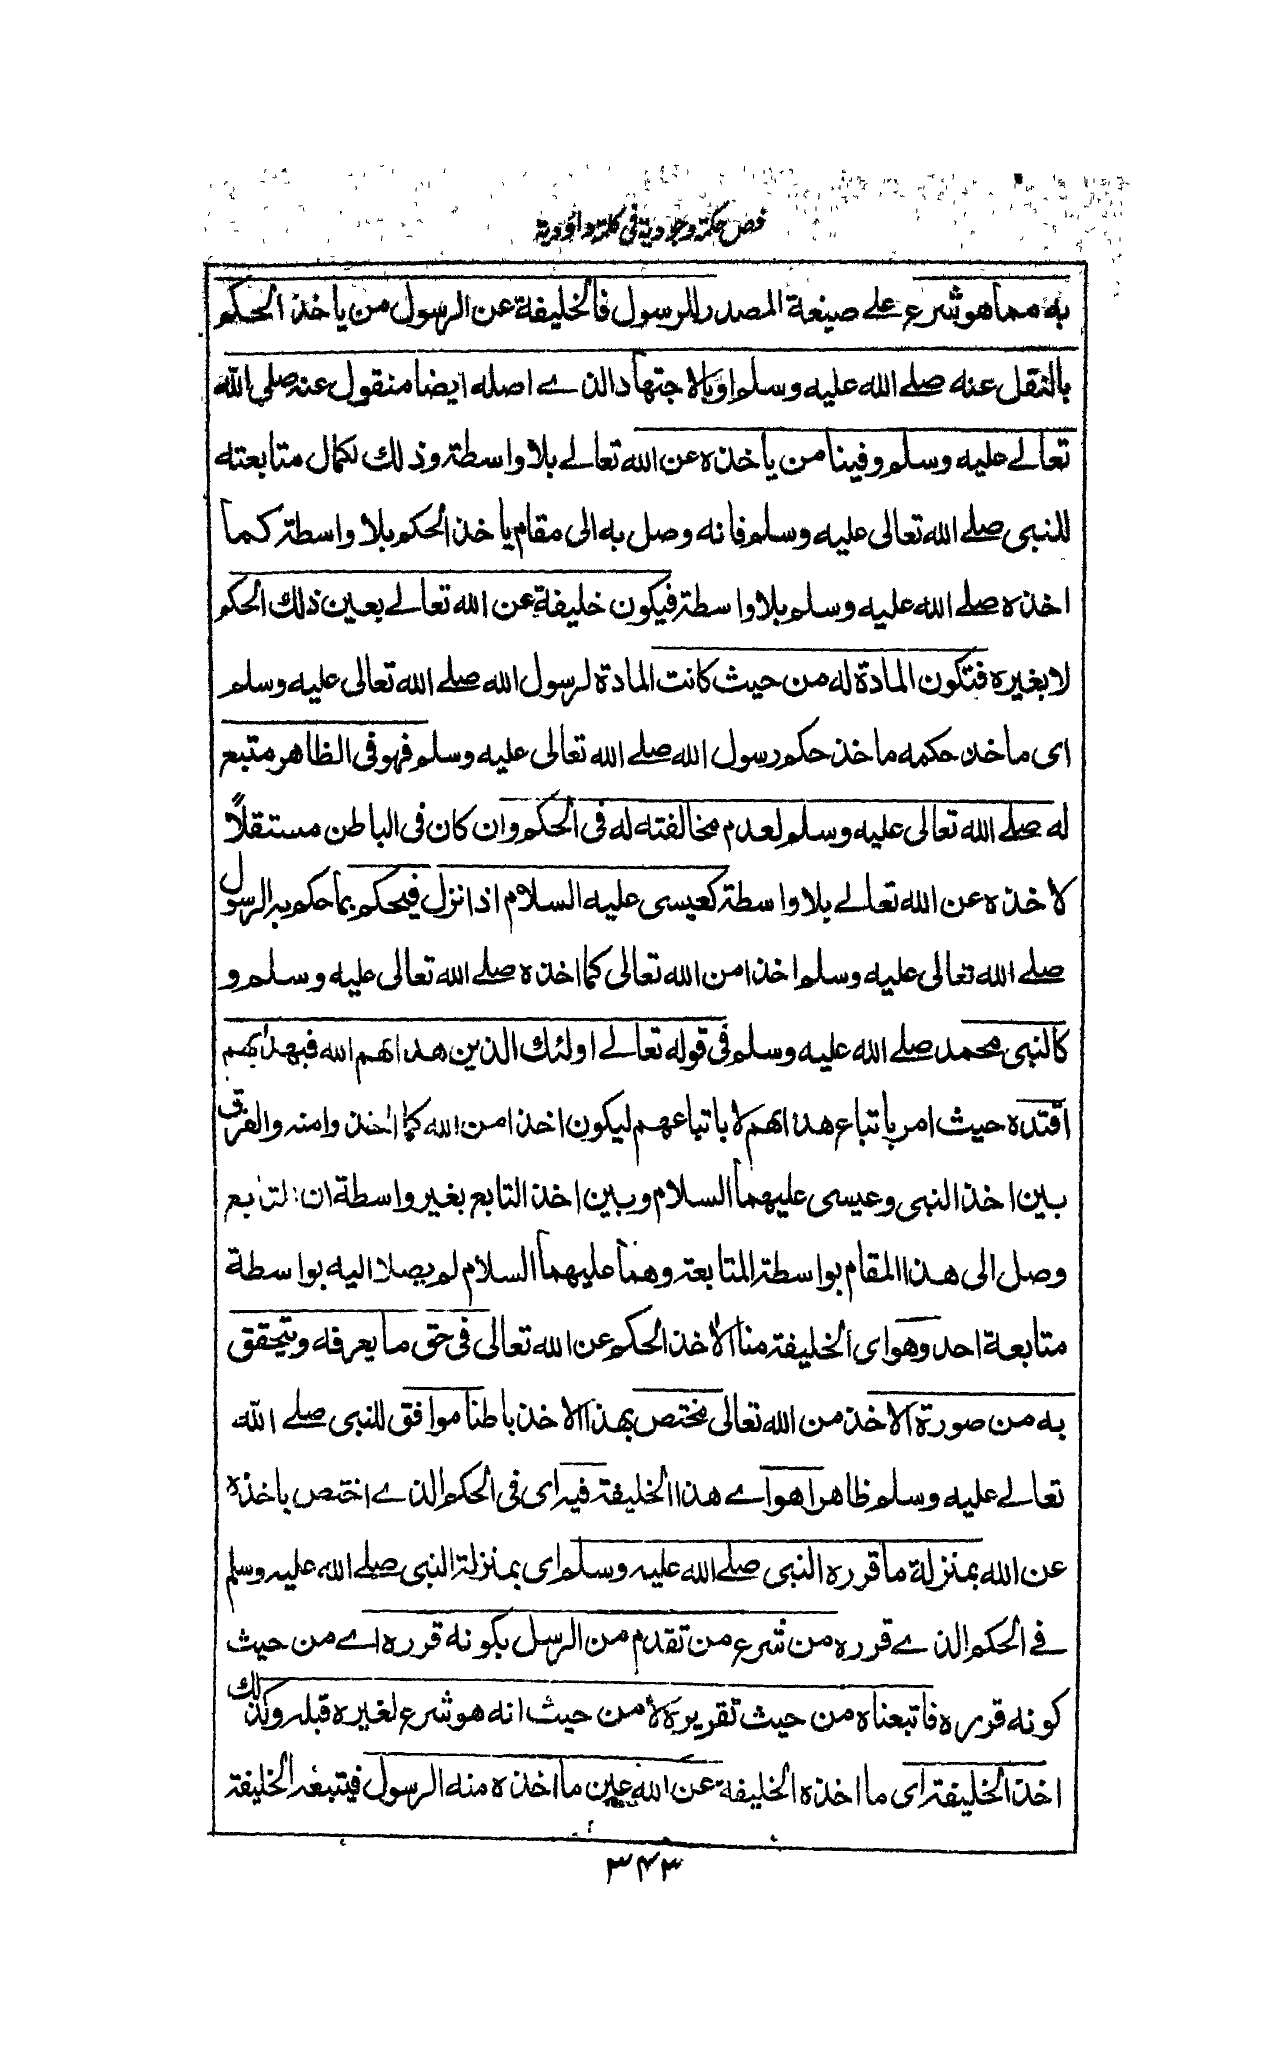 فص حكمة وجودية فى كلمة داودية
به مما هو شرع على صيغة المصدر للرسول فالخليفة عن الرسول من ياخذ الحكم
بالنقل عنه صلے الله عليه وسلم او بالاجتهاد الذے اصله ايضا منقول عنه صلى الله
تعالے عليه وسلم وفينا من ياخذه عن الله تعالے بلا واسطة وذلك لكمال متابعته
للنبى صلے الله تعالى عليه وسلم فانه وصل به الى مقام ياخذ الحكم بلا واسطة كما
اخذه صلے الله عليه وسلم بلا واسطة فيكون خليفة عن الله تعالے بعين ذلك الحكم
لا بغيره فتكون المادة له من حيث كانت المادة لرسول الله صلے الله تعالى عليه وسلم
اى ماخذ حكمه ماخذ حكم رسول الله صلے الله تعالى عليه وسلم فهو فى الظاهر متبع
له صلے الله تعالى عليه وسلم لعدم مخالفته له فى الحكم وان كان فى الباطن مستقلاً
لاخذه عن الله تعالے بلا واسطة كعيسى عليه السلام اذا نزل فيحكم بما حكم به الرسول
صلے الله تعالى عليه وسلم اخذا من الله تعالى كما اخذه صلے الله تعالى عليه وسلم و
كالنبى محمد صلے الله عليه وسلم فى قوله تعالے اولئك الذين هداهم الله فبهداهم
اقتده حيث امر باتباع هداهم لا باتباعهم ليكون اخذا من الله كما اخذوا منه والفرق
بين اخذ النبى وعيسى عليهما السلام وبين اخذ التابع بغير واسطة ان التابع
وصل الى هذا المقام بواسطة المتابعة وهما عليهما السلام لم يصلا اليه بواسطة
متابعة احد وهو اى الخليفة منا الاخذ الحكم عن الله تعالى فى حق ما يعرفه ويتحقق
به من صورة الاخذ من الله تعالى مختص بهذا الاخذ باطنا موافق للنبى صلے الله
تعالے عليه وسلم ظاهرا هو اے هذا الخليفة فيه اى فى الحكم الذے اختص باخذه
عن الله بمنزلة ما قرره النبى صلے الله عليه وسلم اى بمنزلة النبى صلے الله عليه وسلم
فے الحكم الذے قرره من شرع من تقدم من الرسل بكونه قرره اے من حيث
كونه قرره فاتبعناه من حيث تقريره لا من حيث انه هو شرع لغيره قبله وكذلك
اخذ الخليفة اى ما اخذه الخليفة عن الله عين ما اخذه منه الرسول فيتبعه الخليفة
٣٤٣